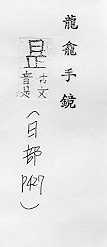 龍龕手鏡
昰古文音是(日部P427)